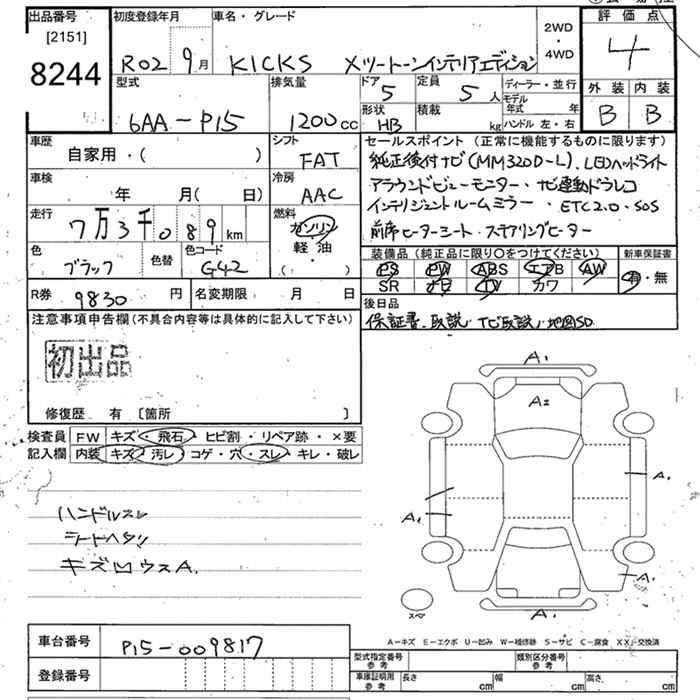 出品番号
[2151]
8244
初度登録年月
R02 9月
車名・グレード
KICKS Xツートーンインテリアエディション
2WD
・
4WD
評価点
4
外装 内装
B B
型式
6AA-P15
排気量
1200cc
ドア
5
定員
5人
形状
HB
積載
kg
ディーラー・並行
モデル年式 年
ハンドル 左・右
車歴
自家用・( )
シフト
FAT
車検
年 月( 日)
冷房
AAC
走行
7万3千089km
燃料
ガソリン
軽・油
( )
色
ブラック
色替
色コード
G42
セールスポイント(正常に機能するものに限ります)
純正後付ナビ(MM320D-L)、LEDヘッドライト
アラウンドビューモニター・ナビ連動ドラレコ
インテリジェントルームミラー・ETC2.0・SOS
前席ヒーターシート・ステアリングヒーター
装備品(純正品に限り〇をつけてください)
新車保証書
PS PW ABS エアB AW
SR ナビ TV カワ
有・無
R券 9830円
名変期限 月 日
後日品
保証書、取説・ナビ取説・地図SD
注意事項申告欄(不具合内容等は具体的に記入して下さい)
初出品
修復歴 有〔箇所 〕
検査員
記入欄
FW キズ・飛石・ヒビ割・リペア跡・×要
内装 キズ・汚レ・コゲ・穴・スレ・キレ・破レ
ハンドルスレ
シートヘタリ
キズロウスA.
A1
A2
A1
A1
A1
A1
スペア
A-キズ E-エクボ U-凹み W-補修跡 S-サビ C-腐食 XX-交換済
車台番号
P15-009817
登録番号
型式指定番号
参考
類別区分番号
参考
車庫証明用
参考
長さ cm
幅 cm
高さ cm